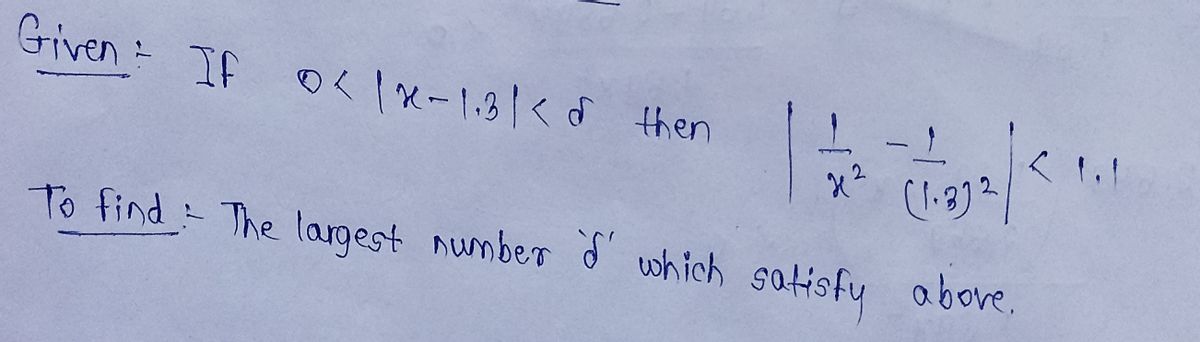 Given :- If 0 < |x - 1.3| < δ then | 1/x² - 1/(1.3)² | < 1.1
To find :- The largest number 'δ' which satisfy above.